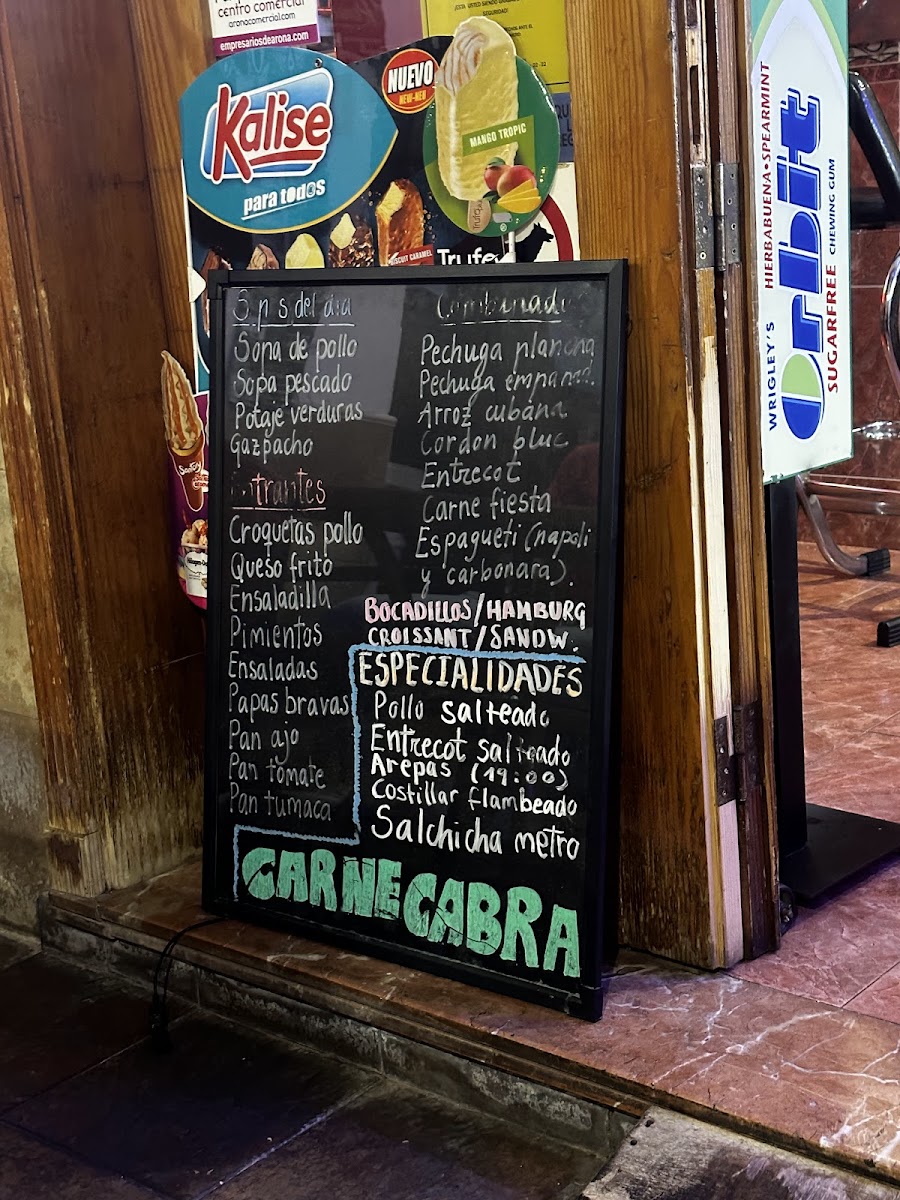 centro comercial
aronacomercial.com
empresariosdearona.com
Kalise
para todos
NUEVO
NEW-NEU
MANGO TROPIC
BISCUIT CARAMEL
WRIGLEY'S
Orbit
HERBABUENA•SPEARMINT
SUGARFREE
CHEWING GUM
del dia
Sopa de pollo
Sopa pescado
Potaje verduras
Gazpacho
Croquetas pollo
Queso frito
Ensaladilla
Pimientos
Ensaladas
Papas bravas
Pan ajo
Pan tomate
Pan tumaca
Pechuga plancha
Pechuga
Arroz cubana
Cordon bluc
Entrecot
Carne fiesta
Espagueti (napoli
y carbonara).
BOCADILLOS/HAMBURG
CROISSANT/SANDW.
ESPECIALIDADES
Pollo salteado
Entrecot salteado
Arepas (19:00)
Costillar flambeado
Salchicha metro
CARNE CABRA